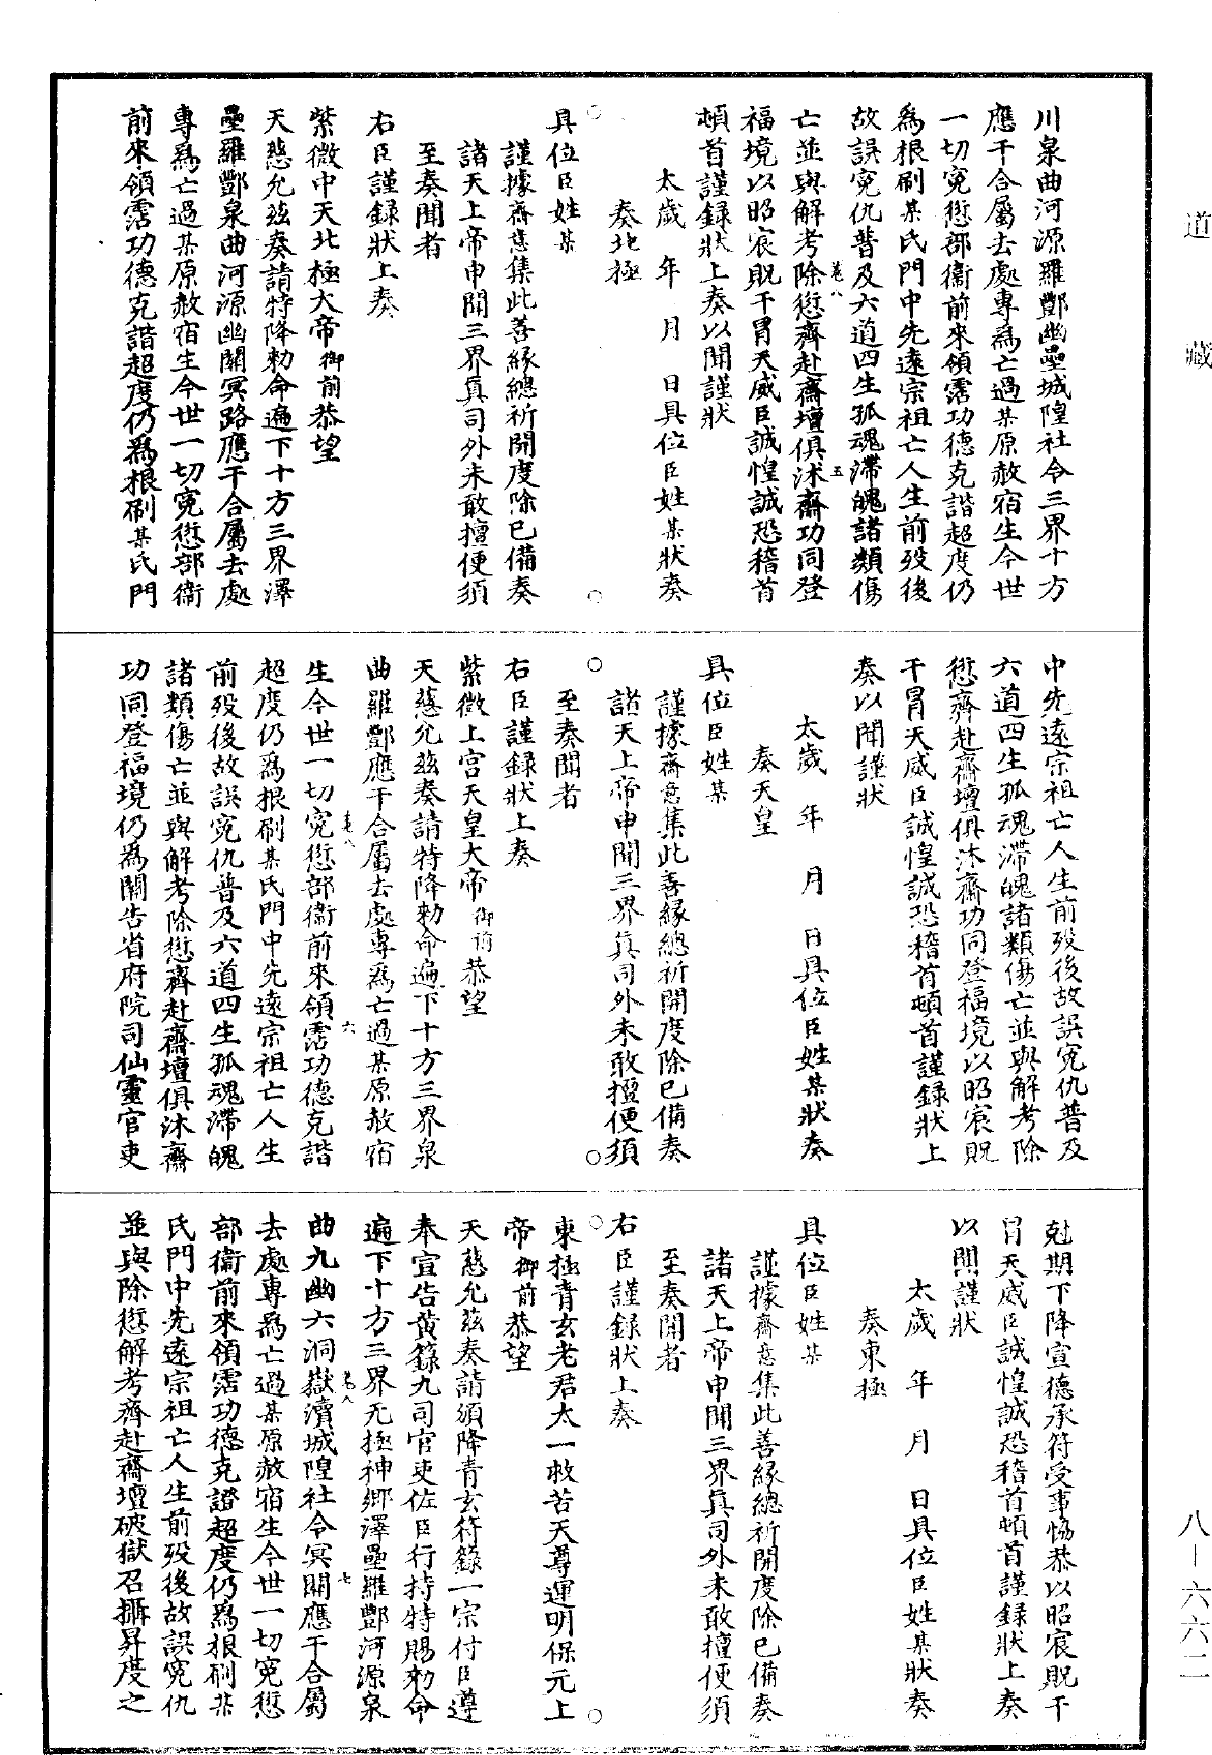 道藏
川泉曲河源羅酆幽壘城隍社令三界十方
應干合屬去處專為亡過某原赦宿生今世
一切寃愆部衛前來領霑功德克諧超度仍
為根刷某氏門中先遠宗祖亡人生前歿後
故誤寃仇普及六道四生孤魂滯魄諸類傷
卷八
五
亡並與解考除愆齊赴齋壇俱沐齋功同登
福境以昭宸貺干冒天威臣誠惶誠恐稽首
頓首謹錄狀上奏以聞謹狀
太歲 年 月 日具位臣姓某狀奏
奏北極
具位臣姓某
謹據齋意集此善緣總祈開度除已備奏
諸天上帝申聞三界真司外未敢擅便須
至奏聞者
右臣謹錄狀上奏
紫微中天北極大帝御前恭望
天慈允茲奏請特降勅命遍下十方三界澤
壘羅酆泉曲河源幽關冥路應干合屬去處
專為亡過某原赦宿生今世一切寃愆部衛
前來領霑功德克諧超度仍為根刷某氏門
中先遠宗祖亡人生前歿後故誤寃仇普及
六道四生孤魂滯魄諸類傷亡並與解考除
愆齊赴齋壇俱沐齋功同登福境以昭宸貺
干冒天威臣誠惶誠恐稽首頓首謹錄狀上
奏以聞謹狀
太歲 年 月 日具位臣姓某狀奏
奏天皇
具位臣姓某
謹據齋意集此善緣總祈開度除已備奏
諸天上帝申聞三界真司外未敢擅便須
至奏聞者
右臣謹錄狀上奏
紫微上宮天皇大帝御前恭望
天慈允茲奏請特降勅命遍下十方三界泉
曲羅酆應干合屬去處專為亡過某原赦宿
卷八
六
生今世一切寃愆部衛前來領霑功德克諧
超度仍為根刷某氏門中先遠宗祖亡人生
前歿後故誤寃仇普及六道四生孤魂滯魄
諸類傷亡並與解考除愆齊赴齋壇俱沐齋
功同登福境仍為關告省府院司仙靈官吏
尅期下降宣德承符受事恊恭以昭宸貺干
冒天威臣誠惶誠恐稽首頓首謹錄狀上奏
以聞謹狀
太歲 年 月 日具位臣姓某狀奏
奏東極
具位臣姓某
謹據齋意集此善緣總祈開度除已備奏
諸天上帝申聞三界真司外未敢擅便須
至奏聞者
右臣謹錄狀上奏
東極青玄老君太一救苦天尊運明保元上
帝御前恭望
天慈允茲奏請須降青玄符籙一宗付臣遵
奉宣告黃籙九司官吏佐臣行持特賜勅命
遍下十方三界无極神鄉澤壘羅酆河源泉
卷八
七
曲九幽六洞嶽瀆城隍社令冥關應干合屬
去處專為亡過某原赦宿生今世一切寃愆
部衛前來領霑功德克證超度仍為根刷某
氏門中先遠宗祖亡人生前歿後故誤寃仇
並與除愆解考齊赴齋壇破獄召攝昇度之
八—六六二